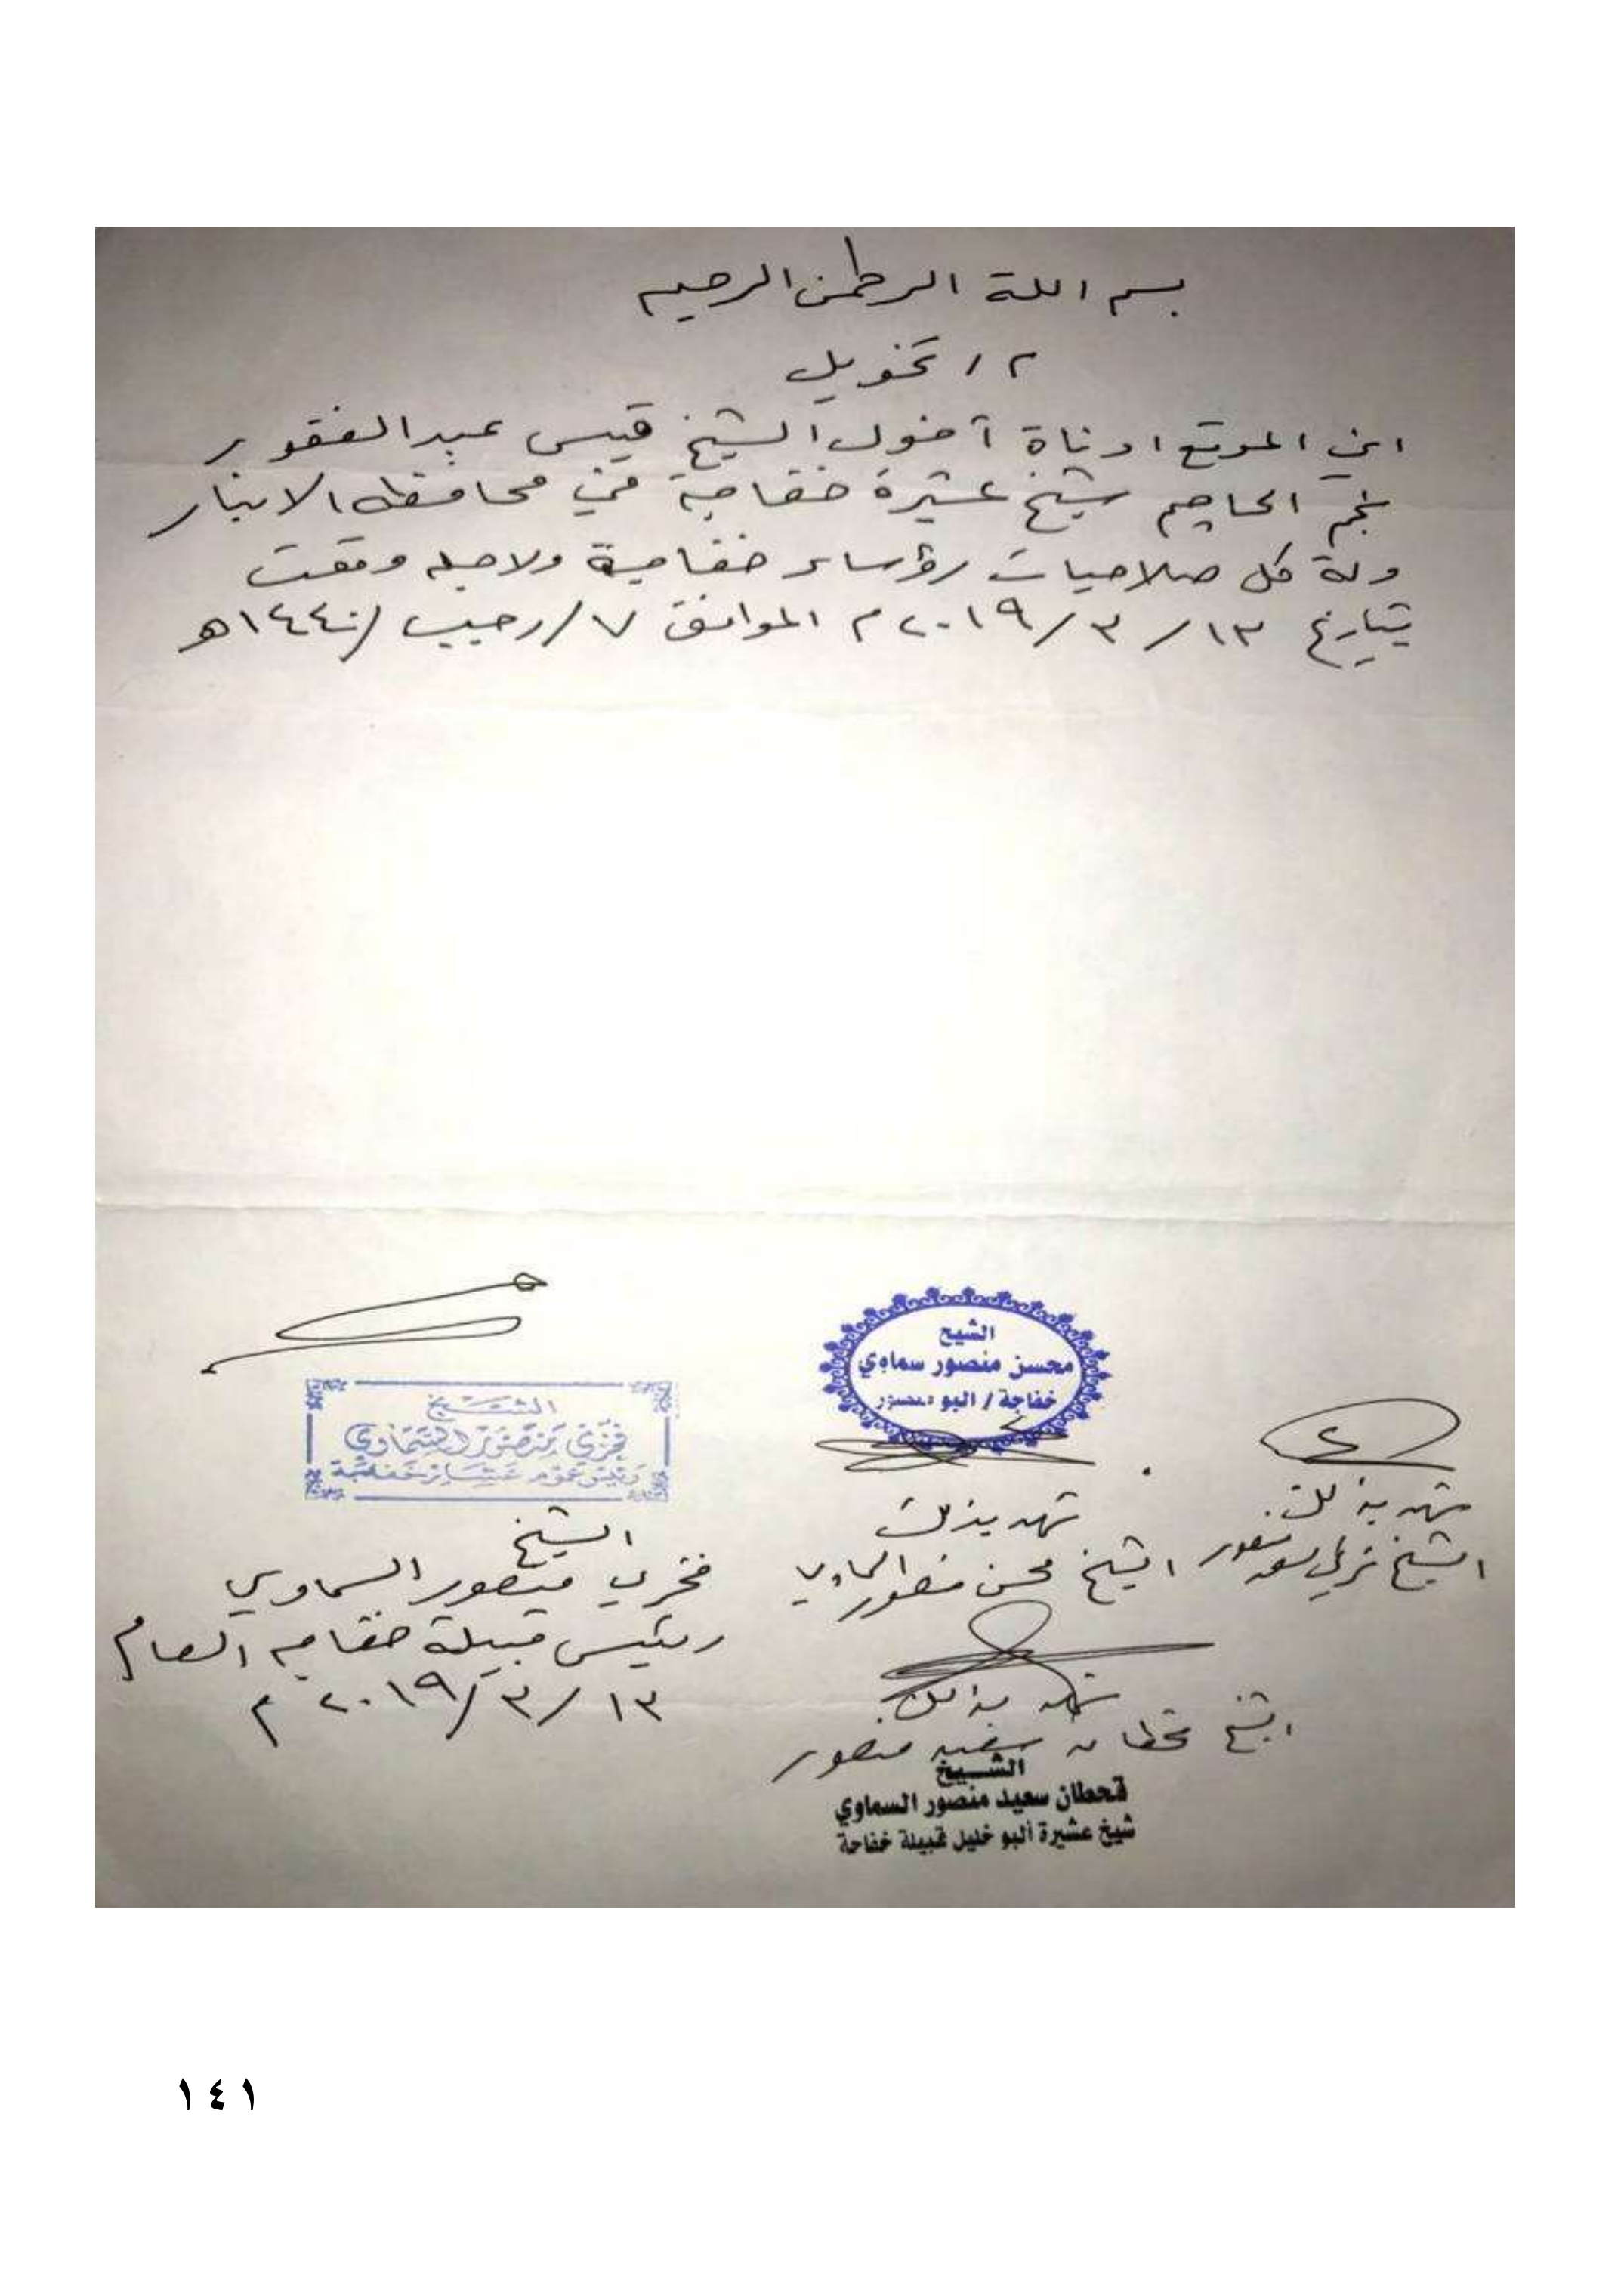 بسم اللة الرحمن الرحيم
م / تخويل
اني الموقع ادناة أخول الشيخ قيس عبد الغفور
نجم الحاجم شيخ عشيرة خفاجة في محافظه الانبار
ولة كل صلاحيات رؤساء خفاجة ولاجله وقعت
بتاريخ ١٣ / ٣ / ٢٠١٩ م الموافق ٧ / رجب / ١٤٤٠ هـ
الشيخ
محسن منصور سماوي
خفاجة / البو
الشيخ
فخري منصور السماوي
رئيس عموم عشائر خفاجة
شهد بذلك
الشيخ منصور
شهد بذلك
الشيخ محسن منصور السماوي
الشيخ
فخري منصور السماوي
رئيس قبيلة خفاجه العام
١٣ / ٣ / ٢٠١٩ م
شهد بذلك
الشيخ قحطان سعيد منصور
الشيخ
قحطان سعيد منصور السماوي
شيخ عشيرة ألبو خليل قبيلة خفاجة
١٤١